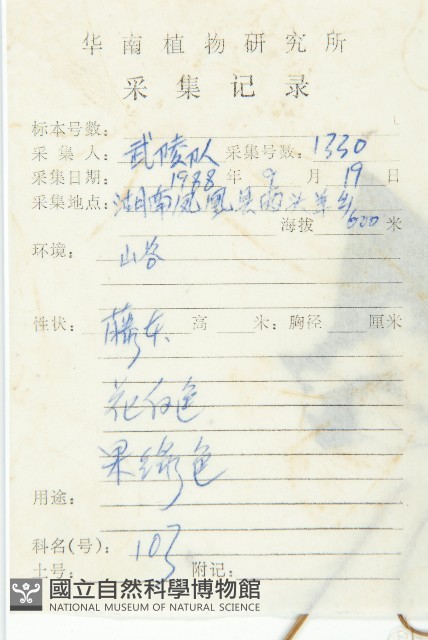 华南植物研究所
采集记录
标本号数:
采集人: 武陵队 采集号数: 1330
采集日期: 1988 年 9 月 19 日
采集地点: 湖南凤凰县两头羊乡
海拔 600 米
环境: 山谷
性状: 藤本 高 米: 胸径 厘米
花白色
果绿色
用途:
科名(号): 103
土号: 附记:
國立自然科學博物館
NATIONAL MUSEUM OF NATURAL SCIENCE